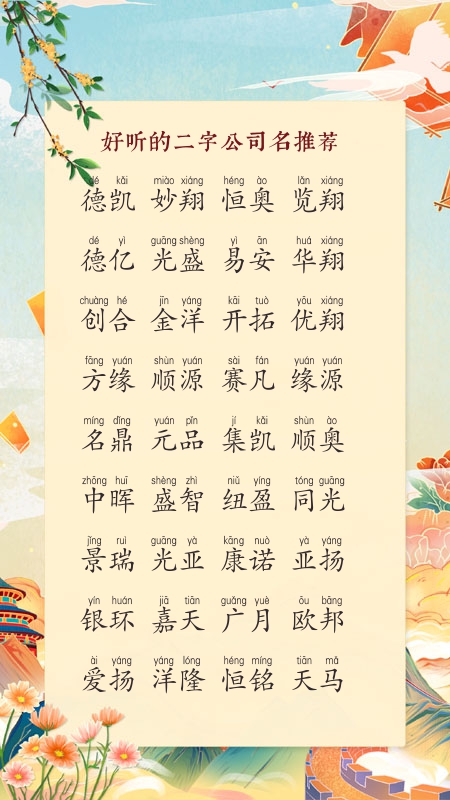 好听的二字公司名推荐
dé kǎi miào xiáng héng ào lǎn xiáng
德凯 妙翔 恒奥 览翔
dé yì guāng shèng yì ān huá xiáng
德亿 光盛 易安 华翔
chuàng hé jīn yáng kāi tuò yōu xiáng
创合 金洋 开拓 优翔
fāng yuán shùn yuán sài fán yuán yuán
方缘 顺源 赛凡 缘源
míng dǐng yuán pǐn jí kǎi shùn ào
名鼎 元品 集凯 顺奥
zhōng huī shèng zhì niǔ yíng tóng guāng
中晖 盛智 纽盈 同光
jǐng ruì guāng yà kāng nuò yà yáng
景瑞 光亚 康诺 亚扬
yín huán jiā tiān guǎng yuè ōu bāng
银环 嘉天 广月 欧邦
ài yáng yáng lóng héng míng tiān mǎ
爱扬 洋隆 恒铭 天马